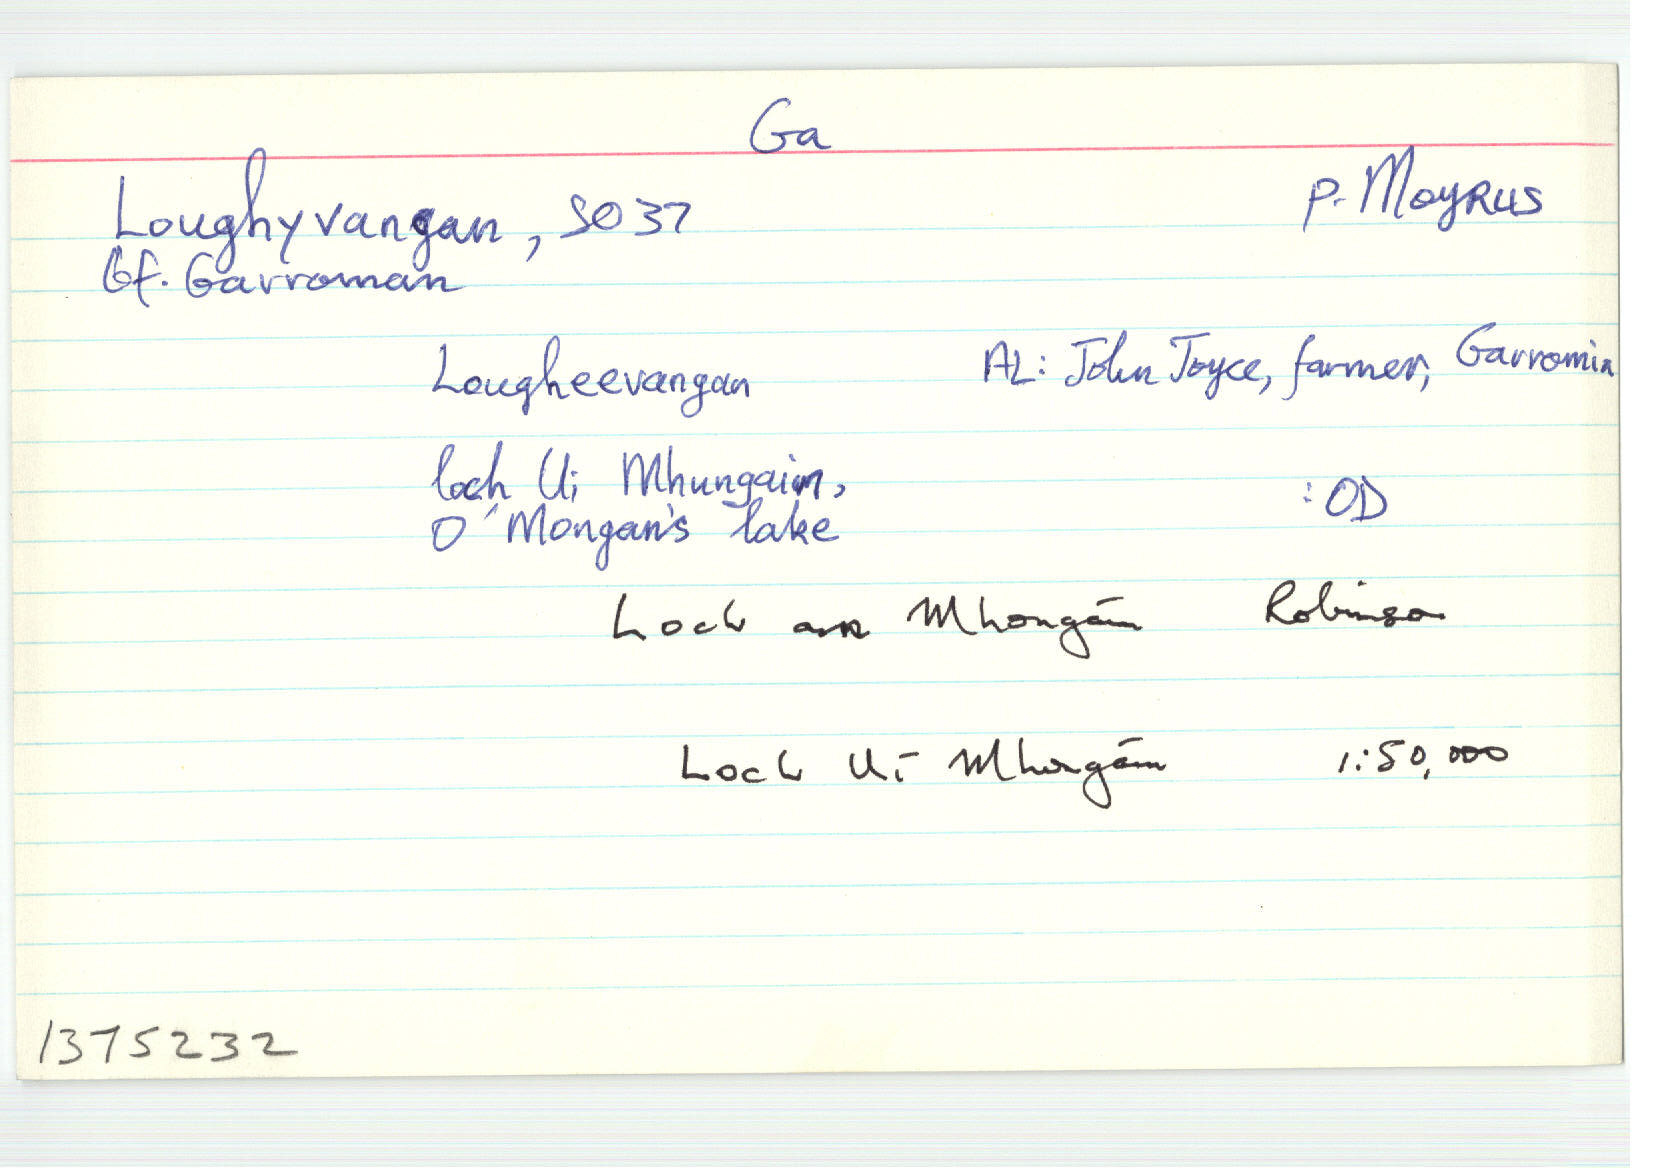 Ga
Loughyvangan, SO 37
P. Moyrus
Bf. Garroman
Lougheevangan
AL: John Joyce, farmer, Garromin
loch Ui Mhungain,
O'Mongan's lake
: OD
Loch an Mhongáin
Robinson
Loch Uí Mhongáin
1:50,000
1375232